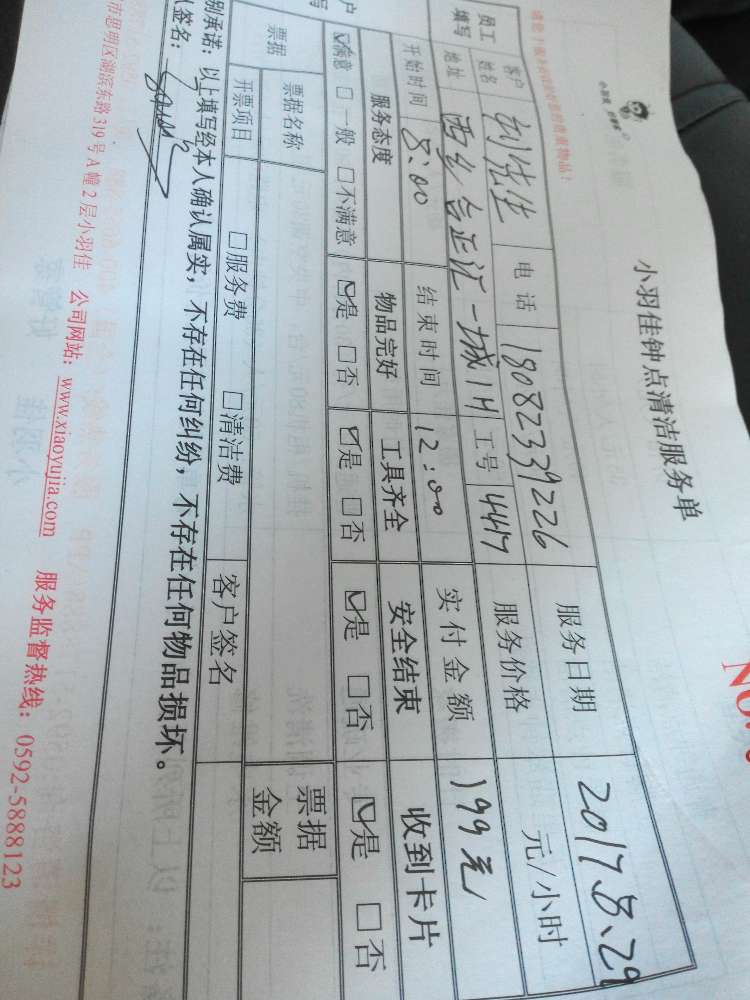 小羽佳钟点清洁服务单
No.
客户姓名 刘先生 电话 18082339226 服务日期 2017.8.29
员工填写 地址 西乡合正汇一城1H 工号 4417 服务价格 元/小时
开始时间 8:00 结束时间 12:00 实付金额 199元
服务态度 物品完好 工具齐全 安全结束 收到卡片
☑满意 □一般 □不满意 ☑是 □否 ☑是 □否 ☑是 □否 ☑是 □否
票据 票据名称 票据金额
开票项目 □服务费 □清洁费 客户签名
别承诺：以上填写经本人确认属实，不存在任何纠纷，不存在任何物品损坏。
签名：
市思明区湖滨东路319号A幢2层小羽佳 公司网站：www.xiaoyujia.com 服务监督热线：0592-5888123